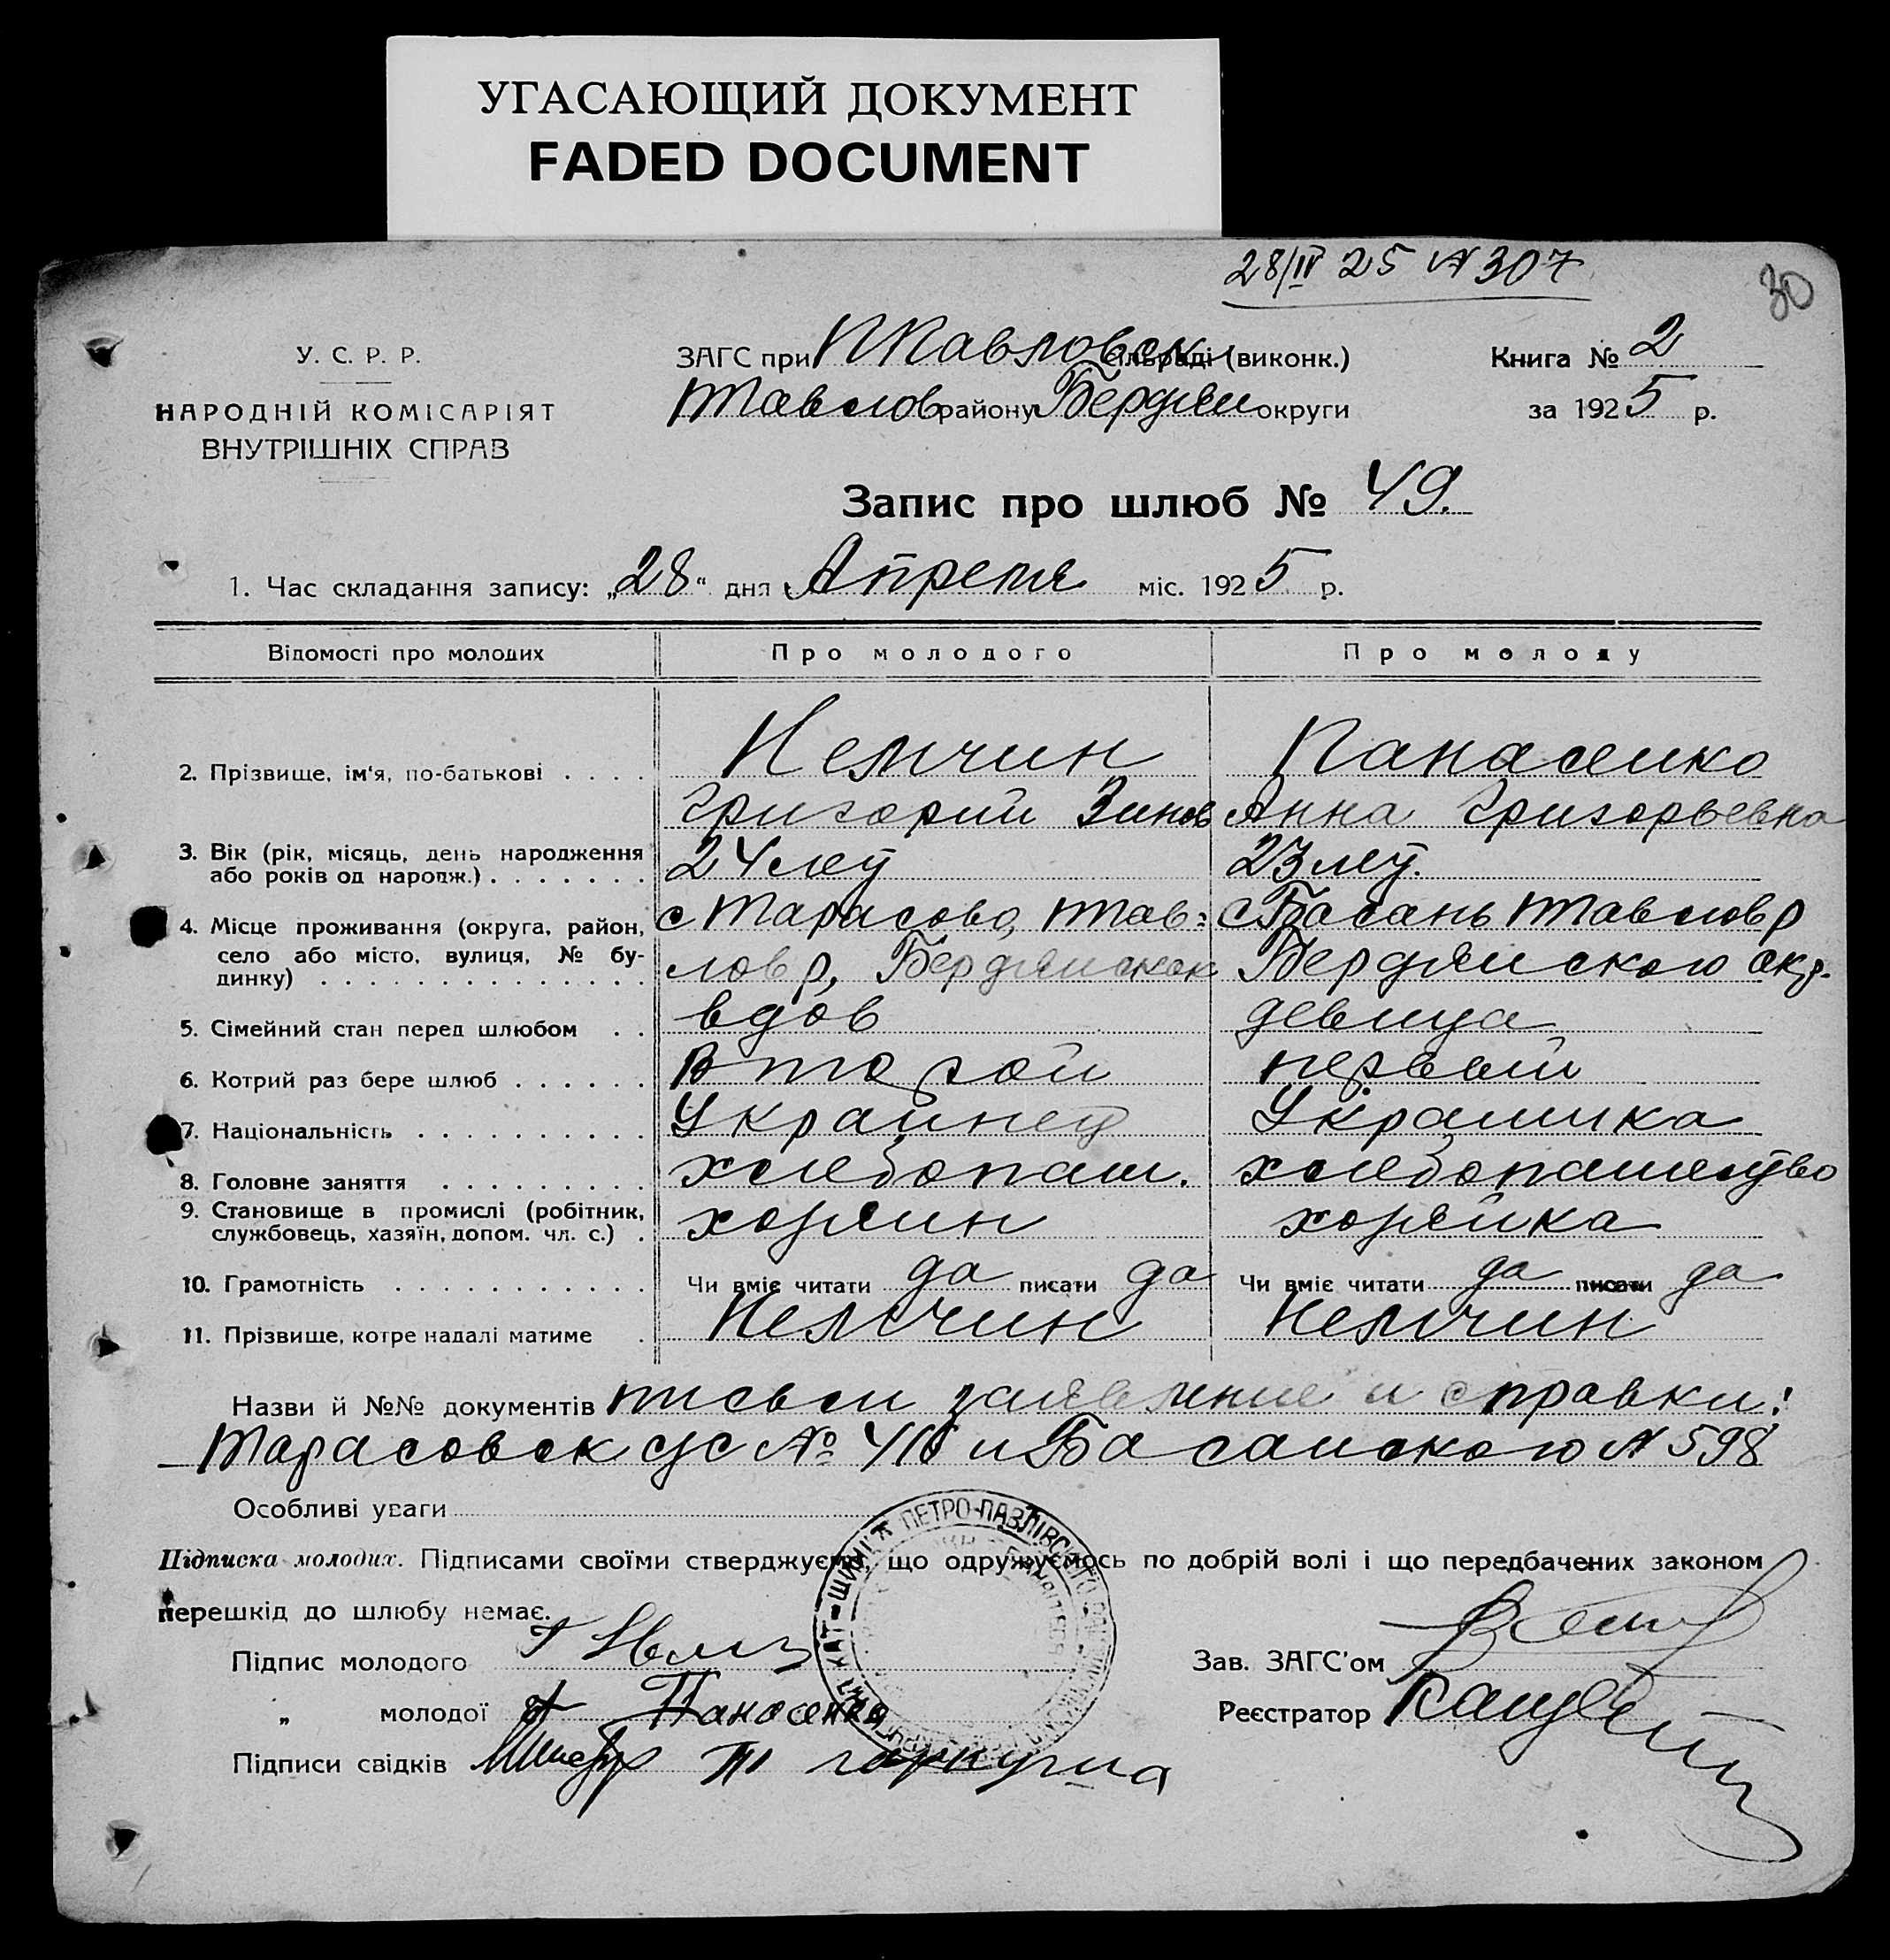 УГАСАЮЩИЙ ДОКУМЕНТ
FADED DOCUMENT
28/IV 25 N 307
30
У. С. Р. Р.
НАРОДНІЙ КОМІСАРІЯТ
ВНУТРІШНІХ СПРАВ
ЗАГС при ППавловск сільраді (виконк.)
района Бердян округи
Книга № 2
за 1925 р.
Запис про шлюб № 49.
1. Час складання запису: „28“ дня Апреля міс. 1925 р.
Відомості про молодих Про молодого Про молоду
2. Прізвище, ім'я, по-батькові . . . . Немчин Панасенко
Григорий Зинов Анна Григорьевна
3. Вік (рік, місяць, день народження
або років од народж.) . . . . . . . 24 лет 23 лет.
4. Місце проживання (округа, район,
село або місто, вулиця, № бу-
динку) . . . . . . . . . . . . . .
с Тарасово, Пав= с Басань р
лов р, Бердянског Бердянского окр.
5. Сімейний стан перед шлюбом . . вдов девица
6. Котрий раз бере шлюб . . . . . . Второй первый
7. Національність . . . . . . . . . . Украинец Украинка
8. Головне заняття . . . . . . . . . хлебопаш. хлебопашество
9. Становище в промислі (робітник,
службовець, хазяїн, допом. чл. с.) . хозяин хозяйка
10. Грамотність . . . . . . . . . . . Чи вміє читати да писати да Чи вміє читати да писати да
11. Прізвище, котре надалі матиме . Немчин Немчин
Назви й №№ документів письм заявление и справки:
Тарасовск с/с № и Басанского N 598
Особливі уваги
Підписка молодих. Підписами своїми стверджуємо, що одружуємось по добрій волі і що передбачених законом
перешкід до шлюбу немає.
ПЕТРО-ПАВЛІВСЬКОГО
Підпис молодого Г
Зав. ЗАГС'ом
„ молодої А Панасенко
Реєстратор
Підписи свідків